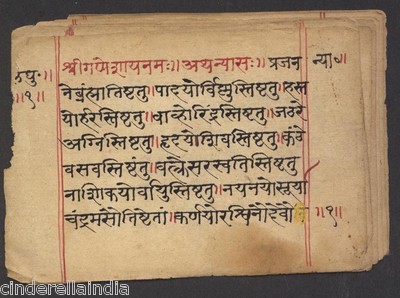 श्रीगणेशायनमः॥अथन्यासः॥प्रजन
नेब्रह्मातिष्ठतु॥पादयोर्विष्णुस्तिष्ठतु॥हस्त
योर्हरस्तिष्ठतु॥बाव्होरिंद्रस्तिष्ठतु॥जठरे
अग्निस्तिष्ठतु॥हृदयेशिवस्तिष्ठतु॥कंठे
वसवस्तिष्ठंतु॥वक्त्रेसरस्वतितिष्ठतु
नाशिकयोर्वायुस्तिष्ठतु॥नयनयोःसूर्या
चंद्रमसौतिष्ठेतां॥कर्णयोरश्विनौदेवौति
लघु॰
॥१॥
न्या॰
॥१॥
cinderellaindia
cinderellaindia